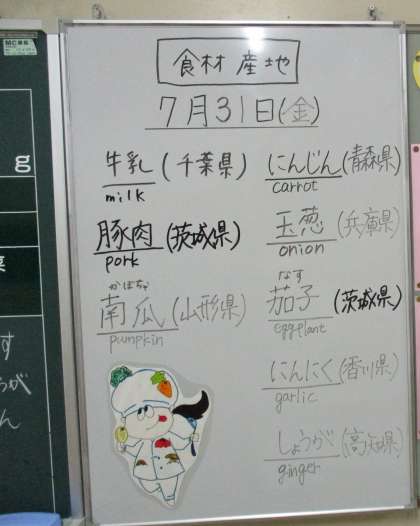 食材産地
7月31日(金)
牛乳(千葉県)
milk
豚肉(茨城県)
pork
かぼちゃ
南瓜(山形県)
pumpkin
にんじん(青森県)
carrot
玉葱(兵庫県)
onion
なす
茄子(茨城県)
eggplant
にんにく(香川県)
garlic
しょうが(高知県)
ginger
g
す
が
ん